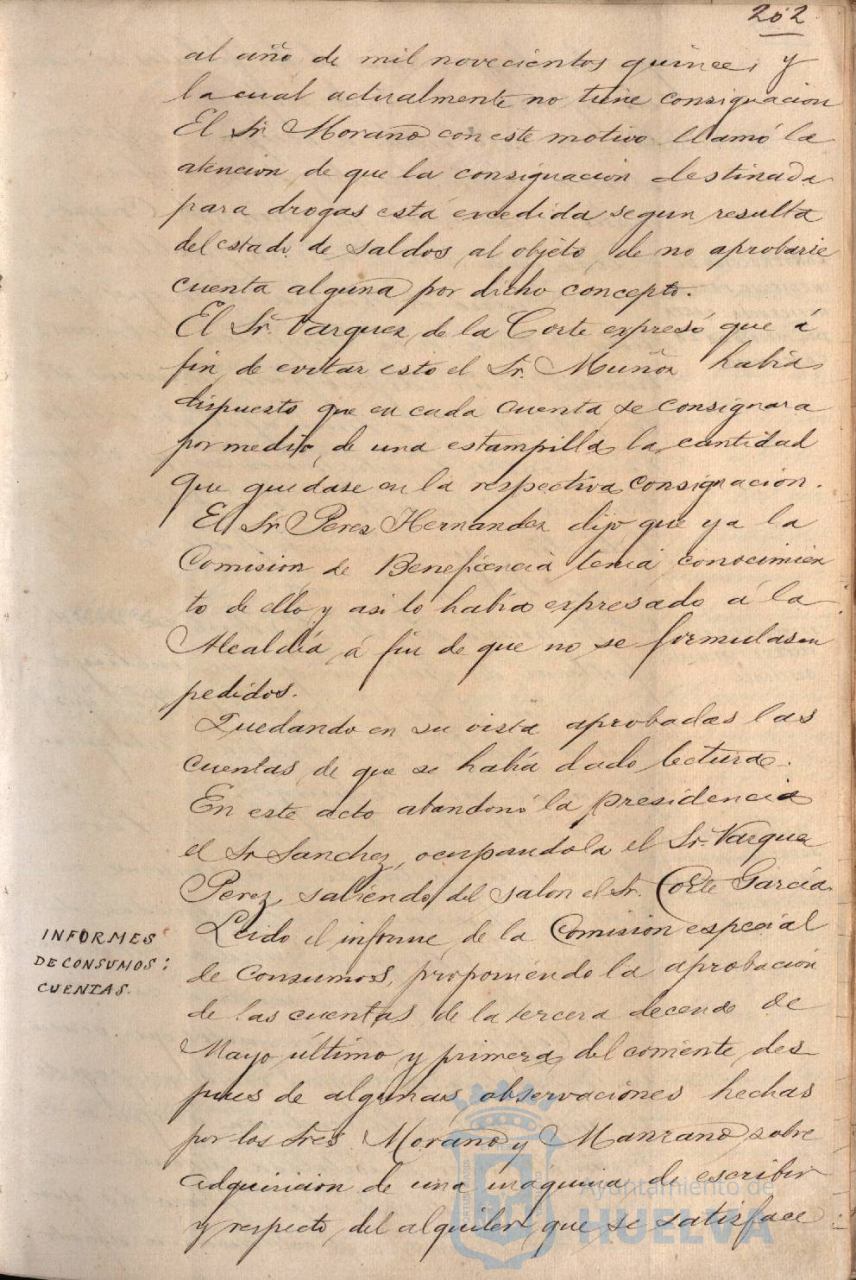 202
al año de mil novecientos quince, y
la cual actualmente no tiene consignacion
El Sr. Morano con este motivo llamó la
atencion de que la consignacion destinada
para drogas está excedida segun resulta
del estado de saldos, al objeto, de no aprobarse
cuenta alguna por dicho concepto.
El Sr. Vazquez de la Corte expresó que á
fin de evitar esto el Sr. Muñoz había
dispuesto que en cada cuenta se consignara
por medio de una estampilla la cantidad
que quedase en la respectiva consignacion.
El Sr. Perez Hernandez dijo que ya la
Comision de Beneficencia tenia conocimien
to de ello y asi lo había expresado á la
Alcaldía á fin de que no se formulasen
pedidos.
Quedando en su vista aprobadas las
cuentas de que se había dado lectura.
En este acto abandonó la presidencia
el Sr Sanchez, ocupandola el Sr. Vazquez
Perez, saliendo del salon el Sr. Corte García.
INFORMES
DE CONSUMOS:
CUENTAS.
Leido el informe de la Comision especial
de Consumos, proponiendo la aprobación
de las cuentas de la tercera decena de
Mayo último y primera del corriente, des
pues de algunas observaciones hechas
por los Sres. Morano y Manzano sobre
adquisicion de una máquina de escribir
y respecto del alquiler que se satisface
Ayuntamiento de
HUELVA